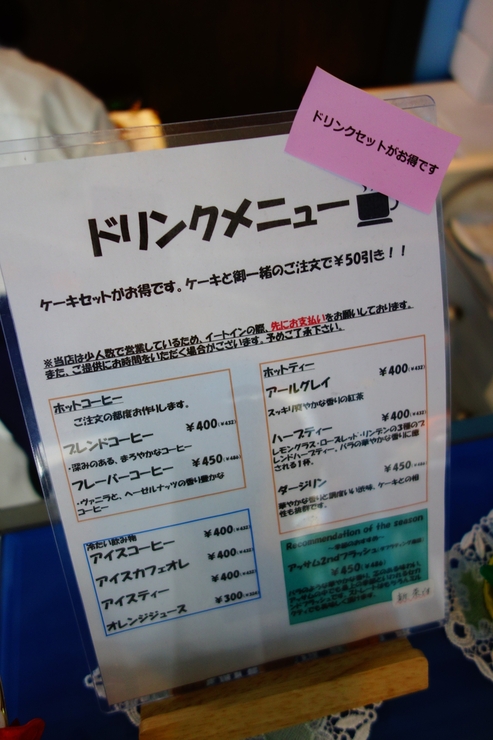 ドリンクセットがお得です
ドリンクメニュー
ケーキセットがお得です。ケーキと御一緒のご注文で¥50引き！！
※当店は少人数で営業しているため、イートインの際、先にお支払いをお願いしております。
また、ご提供にお時間をいただく場合がございます。予めご了承下さい。
ホットコーヒー
ご注文の都度お作りします。
ブレンドコーヒー ¥400(¥432)
・深みのある、まろやかなコーヒー
フレーバーコーヒー ¥450(¥486)
・ヴァニラと、ヘーゼルナッツの香り豊かな
コーヒー
冷たい飲み物
アイスコーヒー ¥400(¥432)
アイスカフェオレ ¥400(¥432)
アイスティー ¥400(¥432)
オレンジジュース ¥300(¥324)
ホットティー
アールグレイ ¥400(¥432)
スッキリ爽やかな香りの紅茶
ハーブティー ¥400(¥432)
レモングラス・ローズレッド・リンデンの3種のブ
レンドハーブティー。バラの華やかな香りに癒
される1杯。
ダージリン ¥450(¥486)
華やかな香りと程度いい渋味。ケーキとの相
性も抜群です。
Recommendation of the season
アッサム2ndフラッシュ
¥450(¥486)